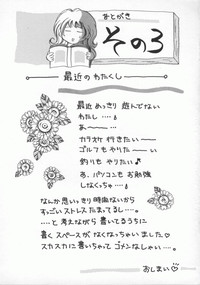 あとがき
その3
最近のわたくし
最近 めっきり 遊んでない
わたし…。
あ〜〜…。
カラオケ行きたい〜
ゴルフもやりたい〜
釣りもやりたい♪
あ、パソコンもお勉強
しなくっちゃ…。
なんか思いっきり時間ないから
すっごいストレスたまってるし…。
…と考えながら書いてるうちに
書くスペースがなくなっちゃいました♡
スカスカに書いちゃってゴメンなしゃい…。
おしまい♡